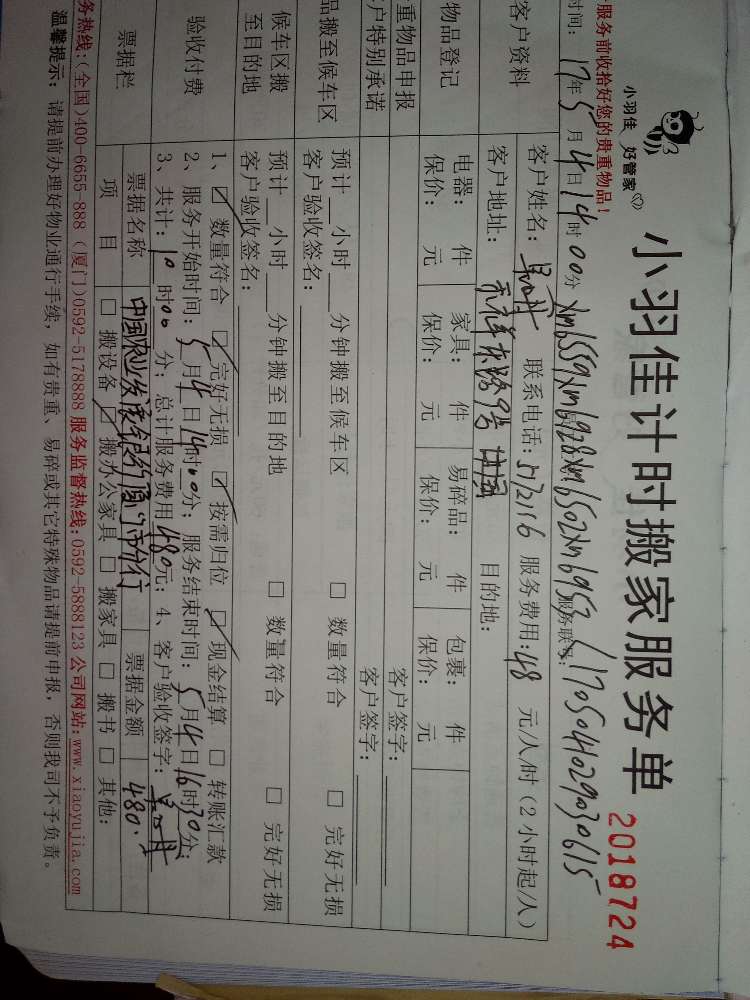 小羽佳 好管家
小羽佳计时搬家服务单
2018724
服务前收拾好您的贵重物品！
时间：17年5月4日14时00分 Xm6559Xm6928Xm6502Xm6953 服务联号：L170504029030615
客户资料
客户姓名： 联系电话：5172116 服务费用：48 元/人/时（2小时起/人）
客户地址： 目的地：
物品登记
电器： 件 家具： 件 易碎品： 件 包裹： 件
保价： 元 保价： 元 保价： 元 保价： 元
重物品申报 客户签字：
户特别承诺 客户签字：
品搬至候车区
预计 小时 分钟搬至候车区 □ 数量符合 □ 完好无损
客户验收签名：
候车区搬
至目的地
预计 小时 分钟搬至目的地 □ 数量符合 □ 完好无损
客户验收签名：
验收付费
1、☑ 数量符合 ☑ 完好无损 ☑ 按需归位 ☑ 现金结算 □ 转账汇款
2、服务开始时间：5月4日14时00分；服务结束时间：5月4日16时30分；
3、共计：10时00分；总计服务费用480元；4、客户验收签字：
票据栏
票据名称 中国农业发展银行厦门市分行 票据金额 480.
项 目 □ 搬设备 ☑ 搬办公家具 □ 搬家具 □ 搬书 □ 其他：
务热线：(全国)400-6655-888 (厦门)0592-5178888 服务监督热线:0592-5888123 公司网站:www.xiaoyujia.com
温馨提示：请提前办理好物业通行手续，如有贵重、易碎或其它特殊物品请提前申报，否则我司不予负责。